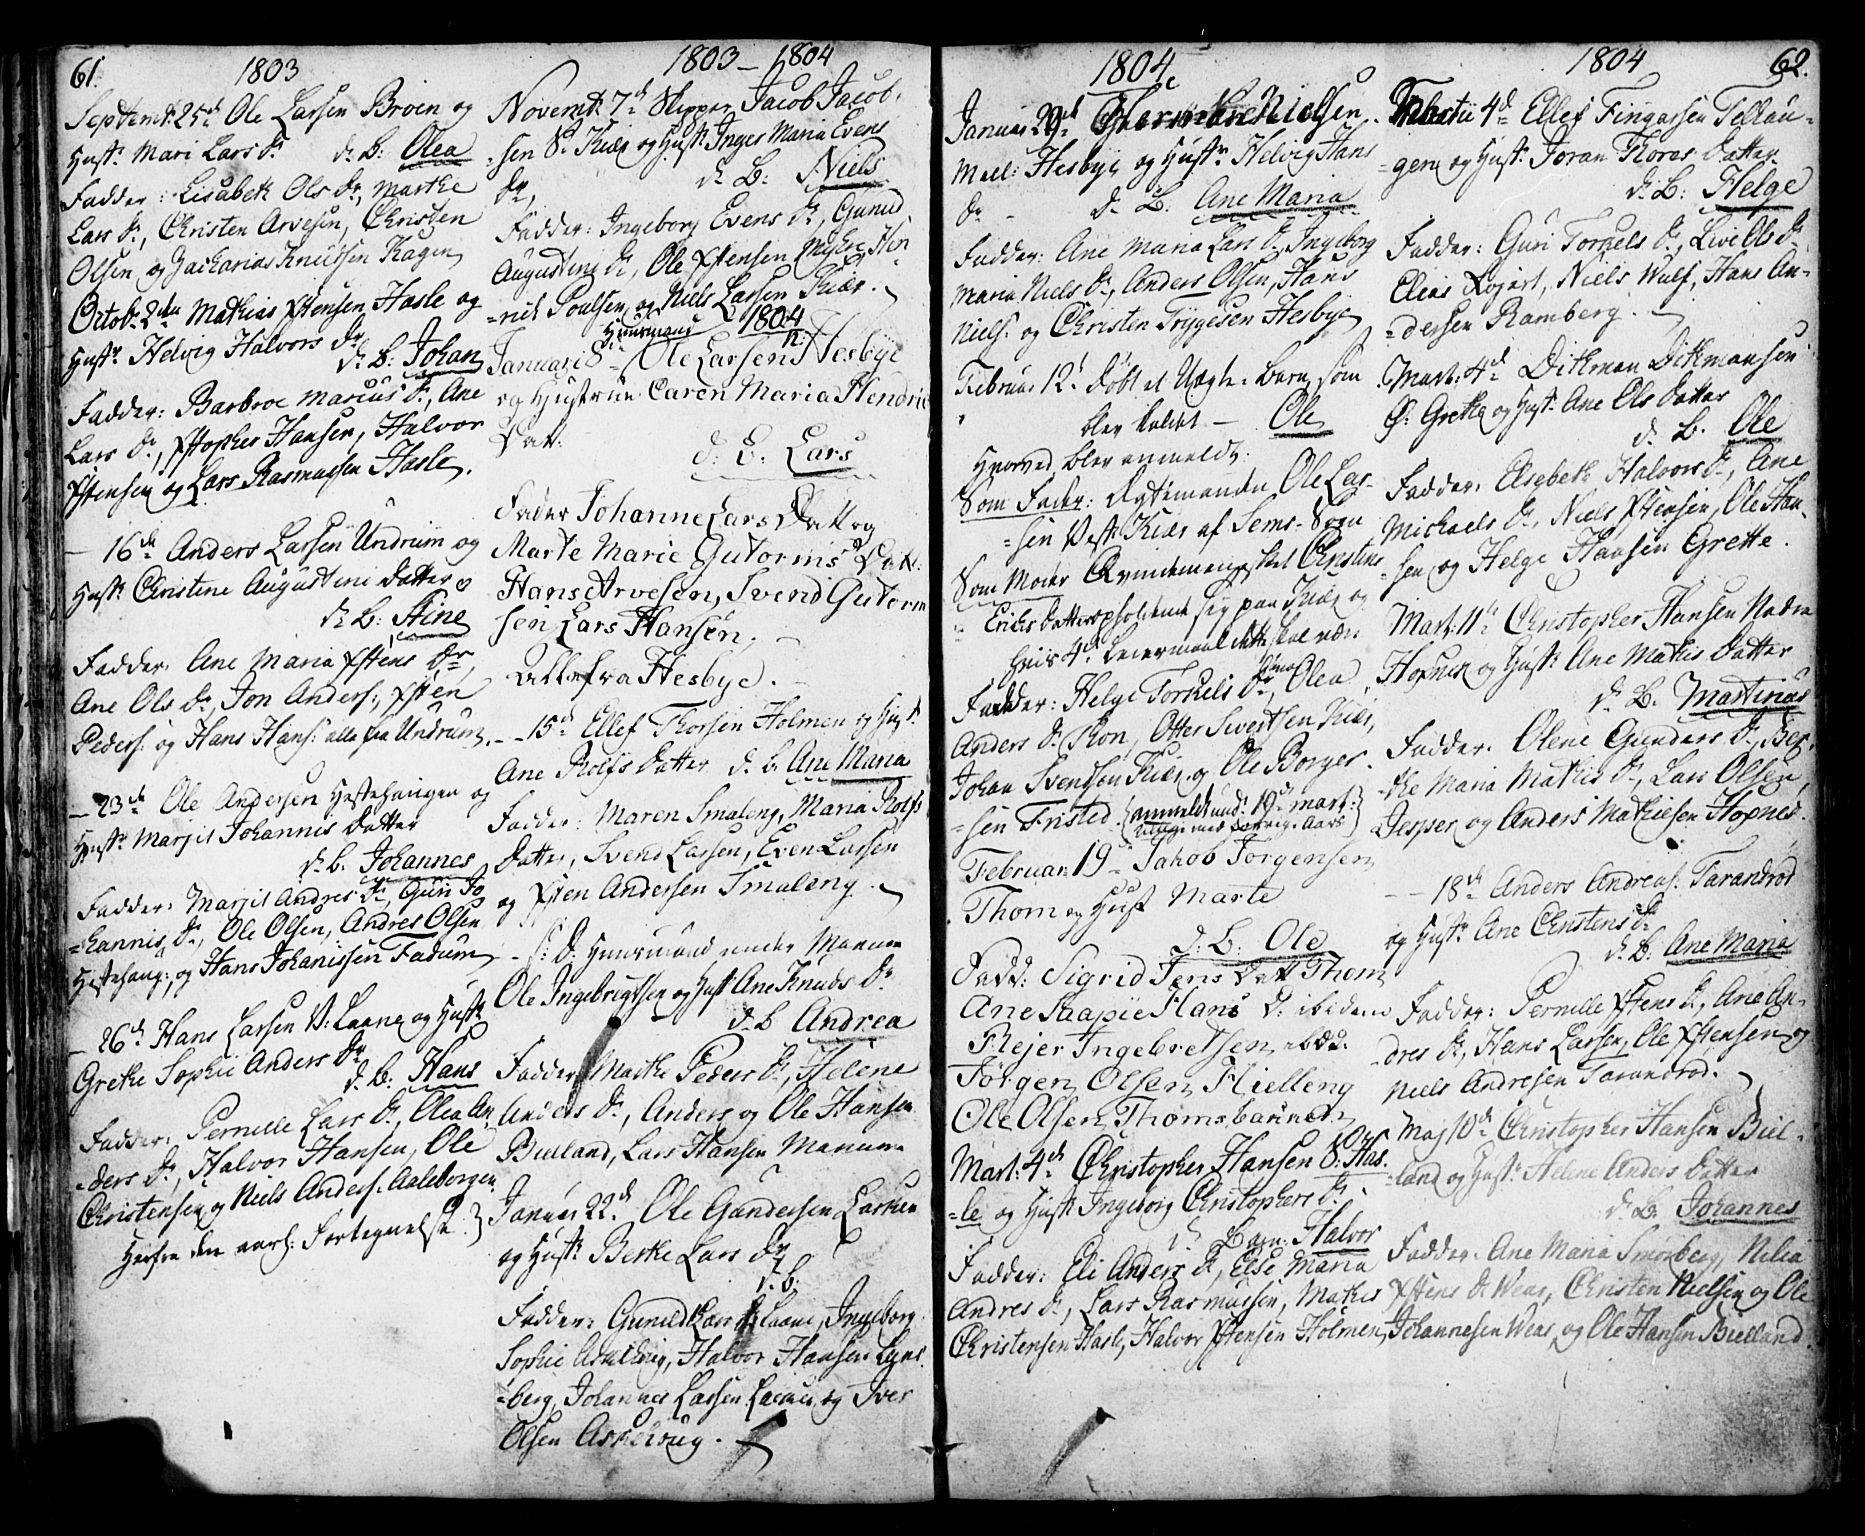 61.
1803
Septembr 25de Ole Larsen Broen og
Hustr. Mari Lars Dr. d: B: Olea
Fadder: Lisabeth Ols Dr, Marthe
Lars Dr, Christen Arvesen, Christen
Olsen, og Zacharias Knudsen Kagen
Octob. 2den Mathias Xstensen Hasle og
Hustr. Helvig Halvors Dr
d: B: Johan
Fadder: Barbroe Marcus Dr, Ane
Lars Dr, Xstopher Hansen, Halvor
Xstensen og Lars Rasmussen Hasle.
– 16de Anders Larsen Undrum og
Hustr. Christine Augustini Datter
d: B: Stine
Fadder: Ane Maria Xstens Dr,
Ane Ols Dr, Jon Anders:, Xsten
Peders: og Hans Hans: alle fra Undrum.
– 23de Ole Andersen Hestehaugen og
Hustr. Marjit Johannis Datter
d: B: Johannes
Fadder: Marjit Andres Dr, Guri Jo
=hannis Dr, Ole Olsen, Andres Olsen
Hestehaug:, og Hans Johanissen Fadum
– 26de Hans Larsen V: Laane og Hustr.
Grethe Sophie Anders Dr
d: B: Hans
Fadder: Pernille Lars Dr, Olea An
=ders Dr, Halvor Hansen, Ole
Christensen og Niels Anders: Aaleborgen
Herfra den aarl: Fortegnelse.
1803 – 1804
Novembr. 7de Skipper Jacob Jacob
=sen S: Kiær og Hustr. Inger Maria Evens
Dr, d: B: Niels
Fadder: Ingeborg Evens Dr, Gunild
Augustini Dr, Ole Xstensen Myhre, Hen
=rich Poulsen og Niels Larsen Kiær.
1804
Huusmand
Januari 8 – Ole Larsen N: Hesbye
og Hustrue Caren Maria Hendric
Dat: d: B: Lars
Fader Johanne Lars Datt og
Marte Marie Gutorms Datt:
Hans Arvesen, Svend Gutorm
sen Lars Hansen,
alle fra Hesbye.
– 15de Ellef Thorsen Holmen og Hustr.
Ane Rolfs Datter d: B: Ane Maria
Fadder: Maren Smaleng, Maria Rolfs
Datter, Svend Larsen, Even Larsen
og Xsten Andersen Smaleng.
– S: D: Huusmand under Manum
Ole Ingebrigtsen og Hustr Ane Knuds Dr
d: B Andrea
Fadder: Marthe Peders Dr, Helene
Anders Dr, Anders og Ole Hansen
Bielland, Lars Hansen Manum
Januar 22de Ole Gundersen
og Hustr. Berthe Lars Dr
d: B:
Fadder: Gunild Lars Dr Laane, Ingeborg
Sophie Askehoug, Halvor Hansen Lyns
=berg, Johannes Larsen Laane, og Iver
Olsen Askehoug.
1804
Januar 29de Nielsen
Mell: Hesbye og Hustr. Helvig Hans
Dr – d: B: Ane Maria
Fadder: Ane Maria Lars Dr, Ingeborg
Maria Niels Dr, Anders Olsen, Hans
Niels: og Christen Tryggesen Hesbye
Februar 12de døbt et Uægte Barn, som
blev kaldet – Ole
Hvorved blev anmeldt:
Som Fader: Dragmanden Ole Lar=
=sen Vest: Kiær af Sems Sogn
Som Moder Qvindemennesket Christine
Erichs Datter opholdende sig paa Kiær og
hvis 4de Leiermaal dette skal være
Fadder: Helge Torkels Dr, Olea
Anders Dr Ron, Otter Sivertsen Kiær,
Johan Svendsen Kiær, og Ole Borger
=sen Tristed {anmeldt und: 19de Mart:
Februar. 19 – Jahob Jørgensen
Thom og Hust Marte
d: B: Ole
Fadd: Sigrid Jens Datt Thom
Ane Saapie Hans D: ibidem
Reier Ingebretsen ibid:
Jørgen Olsen Hielleng
Ole Olsen Thomsbanned
Mart: 4de Christopher Hansen S: Has
=le og Hustr. Ingeborg Christophers Dr.
d: Barn: Halvor
Fadder: Eli Anders Dr, Else Maria
Andres Dr, Lars Rasmussen, Mathis
Christensen Hasle, Halvor Xstensen Holmen
1804
62.
Martii 4de Ellef Fingarsen Tellau=
=gen og Hustr. Joran Thores Datter
d: B: Helge
Fadder: Guri Torkels Dr, Live Ols Dr
Elias Rojert, Niels Wulf, Hans An=
=dersen Ramberg.
Mart: 4de Ditlman Ditlmansen
Ø: Grethe og Hustr. Ane Ols Datter
d: B. Ole
Fadder: Elsebeth Halvors Dr, Ane
Michaels Dr, Niels Xstensen, Ole Han
=sen og Helge Hansen Grette.
Mart: 11te Christopher Hansen Nedre
Hopnes og Hustr. Ane Mathis Datter
d: B. Martinus
Fadder: Olene Gunders Dr, Ber
the Maria Mathis Dr, Lars Olsen,
Jesper og Anders Mathiesen Hopnes.
– 18de Anders Andreas: Tarandrød
og Hustr. Ane Christens Dr
d: B: Ane Maria
Fadder: Pernille Xstens Dr, Ane An=
=dres Dr, Hans Larsen, Ole Xstensen og
Niels Andresen Tarandrød.
Maj 10de Christopher Hansen Biel=
=land og Hustr. Helene Anders Datter
d: B: Johannes
Fadder: Ane Maria Smørberg, Nilia
Xstens Dr Wear, Christen Nielsen og Ole
Johannesen Wear, og Ole Hansen Bielland.